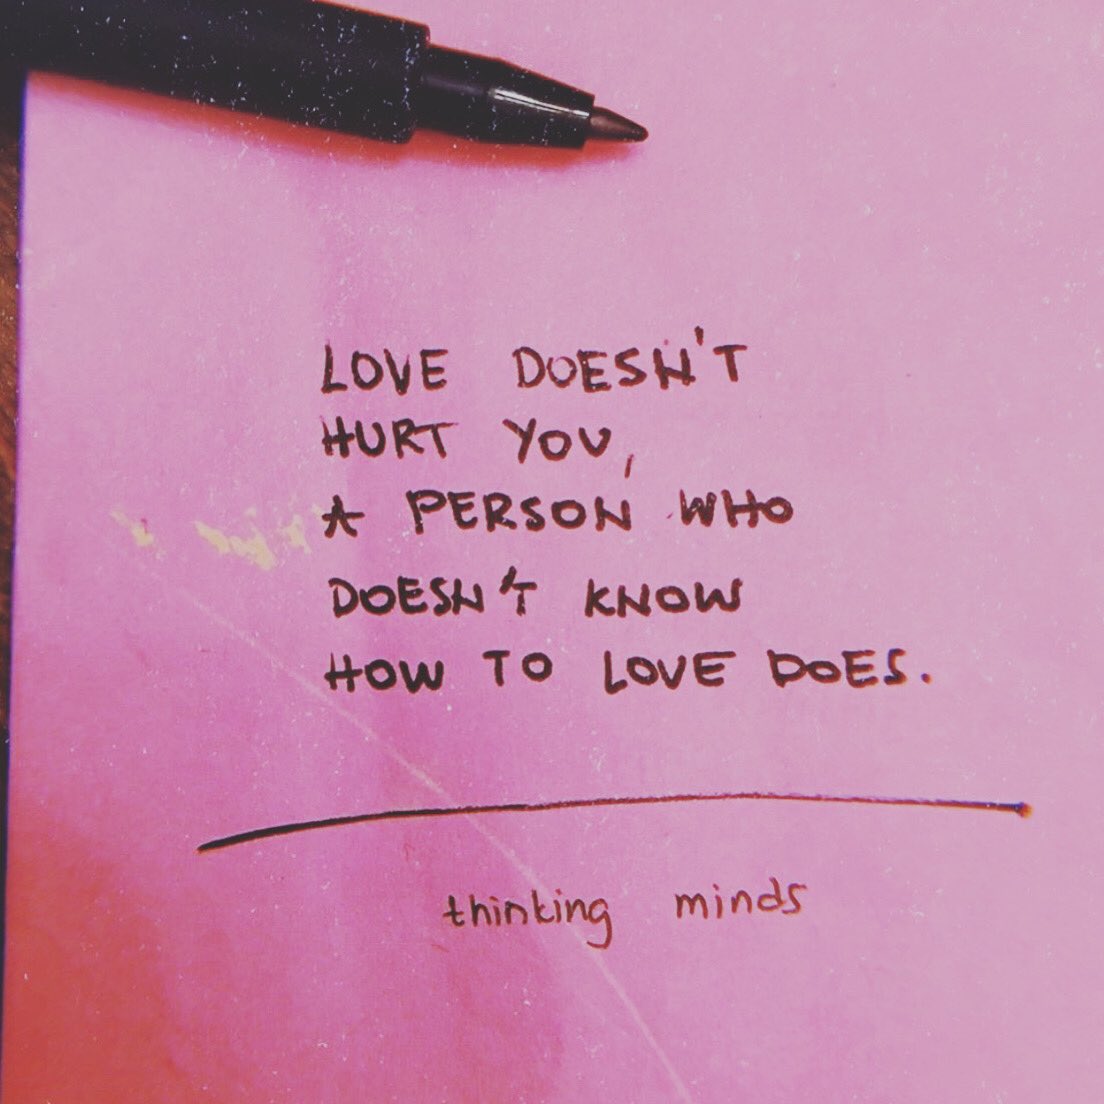 LOVE DOESN'T
HURT YOU,
A PERSON WHO
DOESN'T KNOW
HOW TO LOVE DOES.
thinking minds